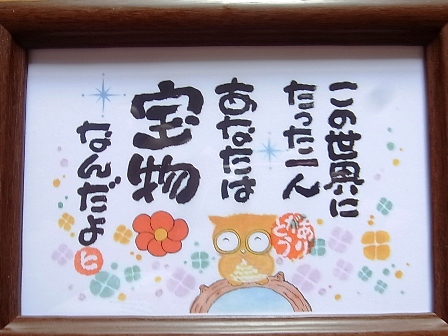 この世界に
たった一人
あなたは
宝物
なんだよ
ありがとう